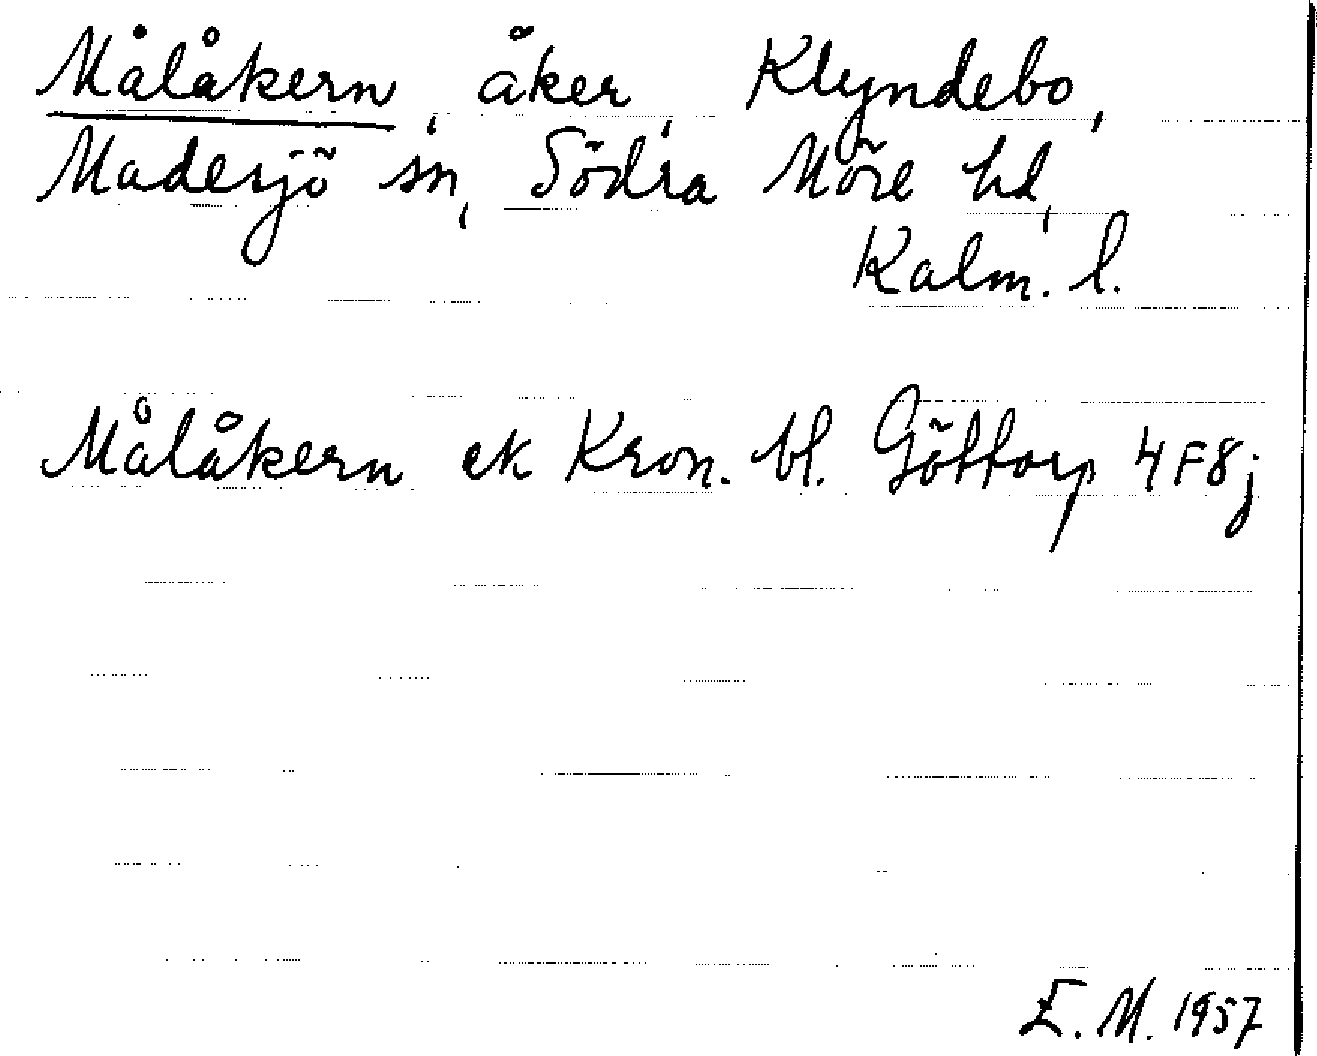 Målåkern, åker, Klyndebo,
Madesjö sn, Södra Möre hd,
Kalm. l.
Målåkern ek Kron. bl. Göttorp 4F8j
E. M. 1957